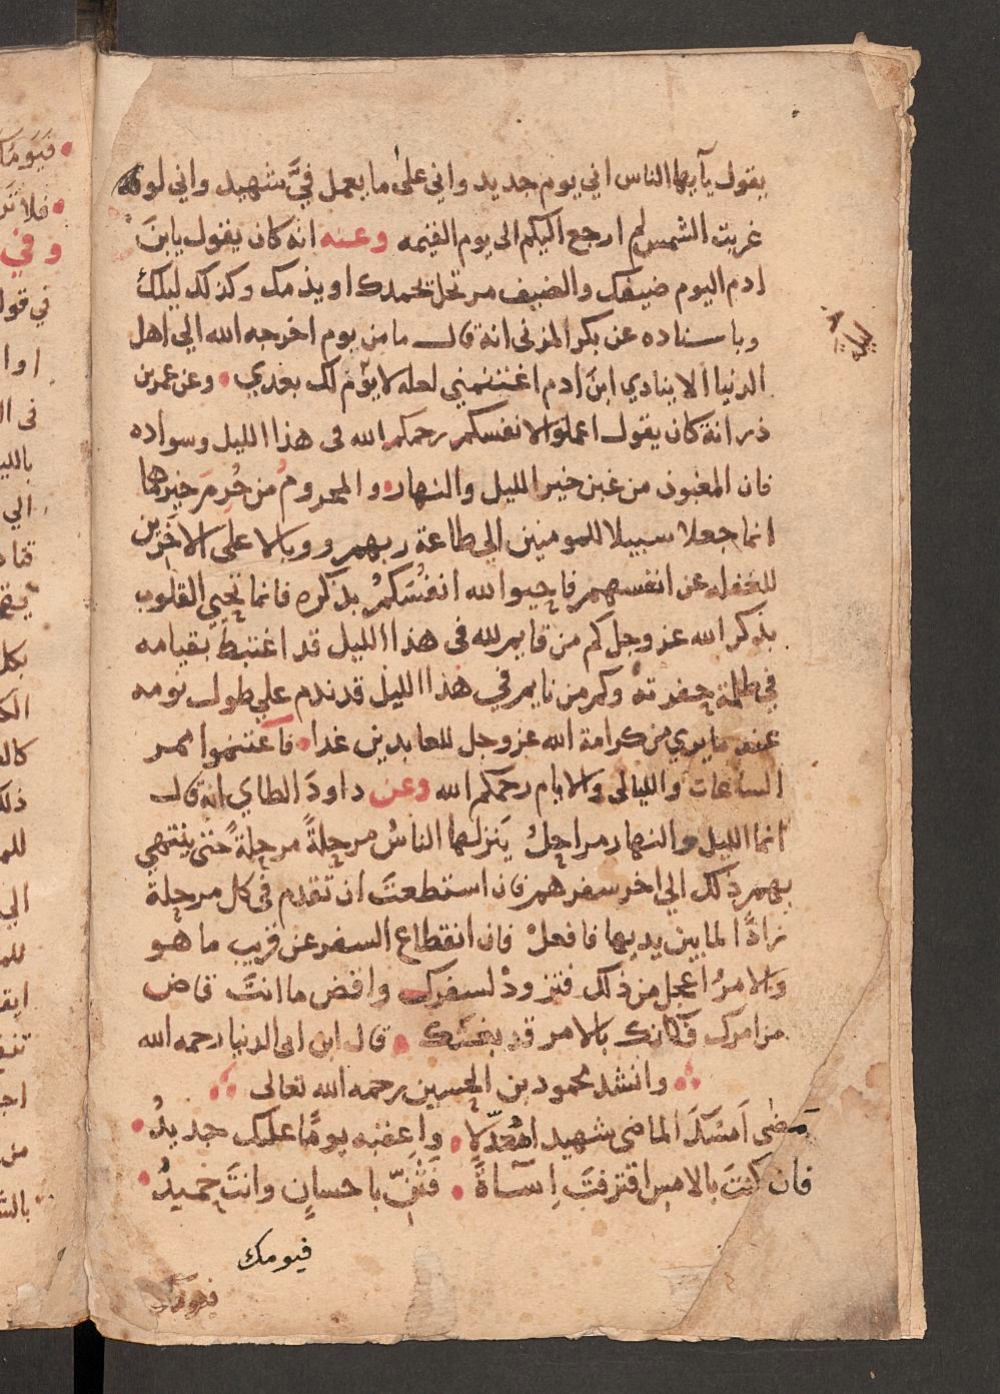 يقول يآيها الناس اني يوم جديد واني على ما يعمل فيَّ شهيد واني لو قد
غربت الشمس لم ارجع اليكم الى يوم القيمه وعنه انه كان يقول يا بن
ادم اليوم ضيفك والضيف مرتحل يحمدك او يذمك وكذلك ليلك
وباسناده عن بكر المزنى انه قال ما من يوم اخرجه الله الي اهل
الدنيا الا ينادي ابن ادم اغتنمني لعله لا يوم لك بعدي وعن عمر بن
ذر انه كان يقول اعملوا لانفسكم رحمكم الله فى هذا الليل وسواده
فان المغبون من غبن خير الليل والنهار والمحروم من حُرِمَ خيرهما
انما جعلا سبيلا للمومنين الي طاعة ربهم ووبالا على الاخرين
للغفله عن انفسهم فاحيوا لله انفُسَكمْ بذكره فانما تحيي القلوب
بذكر الله عز وجل كم من قايم لله فى هذا الليل قد اغتبط بقيامه
في ظلمة حفرته وكم من نايم في هذا الليل قد ندم علي طول نومه
عند ما يري من كرامة الله عز وجل للعابدين غدا فاغتنموا ممر
الساعات والليالى والايام رحمكم الله وعن داودَ الطاي انه قال
انما الليل والنهار مراحلُ يَنزلها الناسُ مرحلةً مرحلةً حتى ينتهي
بهم ذلك الي اخر سفرهم فان استطعتَ ان تقدم في كل مرحلة
زادًا لما بين يديها فافعلْ فان انقطاع السفر عن قريب ما هو
والامرُ اعجل من ذلك فتزودْ لسفرك واقض ما انتَ قاض
من امرك فكانك بالامر قد بغتك قال ابن ابى الدنيا رحمه الله
وانشد محمود بن الحسين رحمه الله تعالى
مَضٰى اَمسُكَ الماضى شهيد امُعدّلا واعقبه يومًا عليك جديدُ
فان كنتَ بالامس اقترفتَ اِسآةً فَثَنِّ باحسانٍ وانتَ حميدُ
فيومك
فيومك